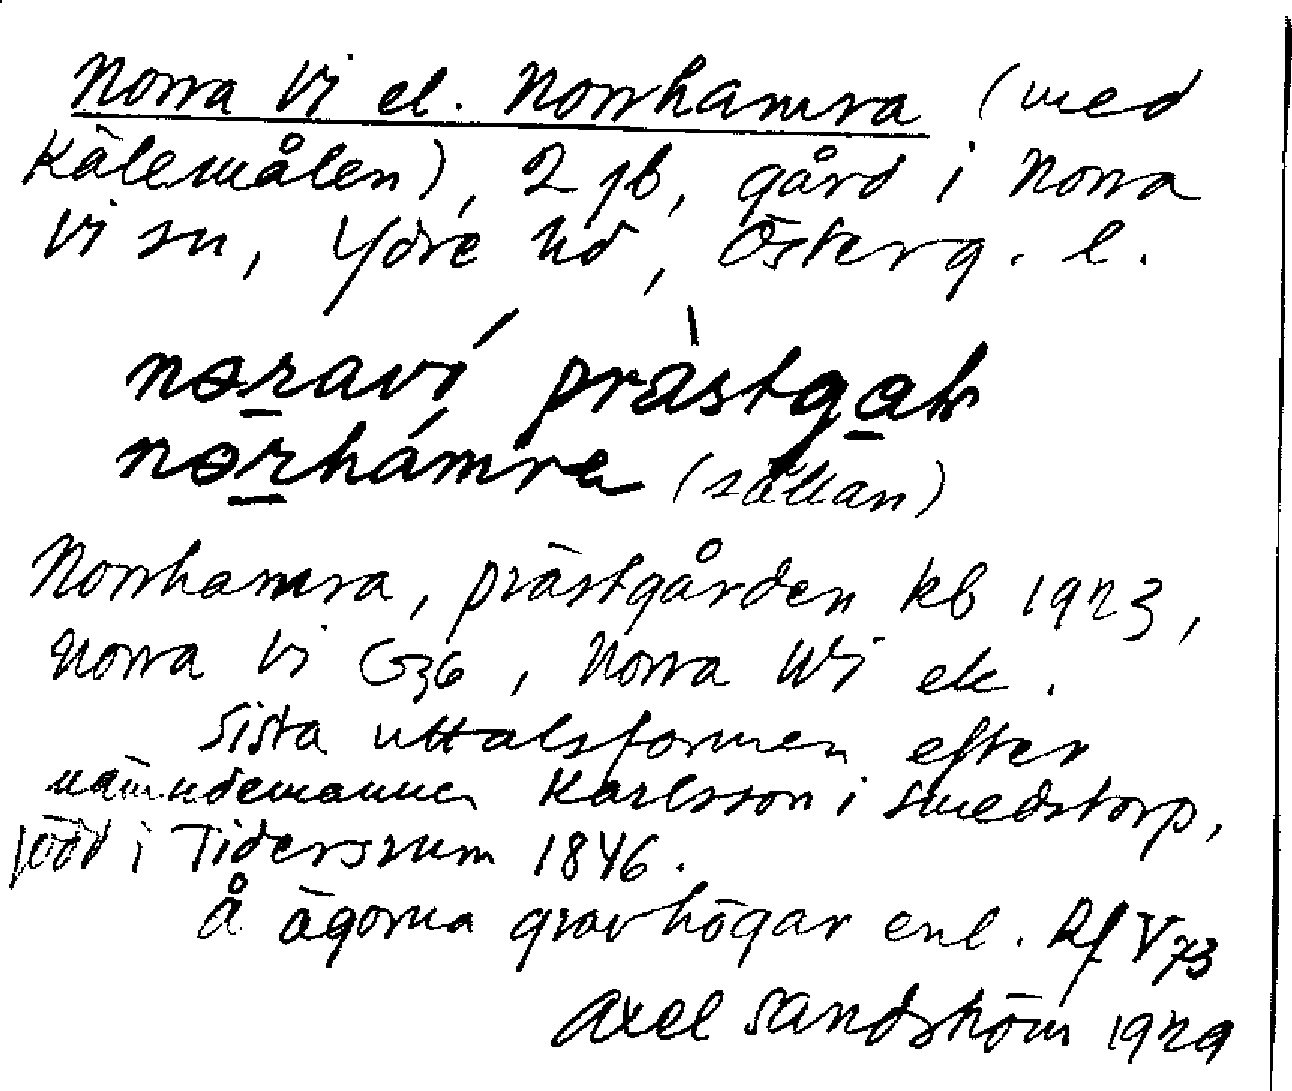 Norra Vi el. Norrhamra (med
Kälemålen), 2 jb, gård i Norra
Vi sn, Ydre hd, Österg. l.
nɘraví prästgaln
nɘrhámra (sällan)
Norrhamra, prästgården kb 1923,
Norra Vi G36, Norra Wi ek.
Sista uttalsformen efter
nämndemannen Karlsson i Smedstorp,
född i Tidersrum 1846.
Å ägorna gravhögar enl. Rf V 73
Axel Sandström 1929